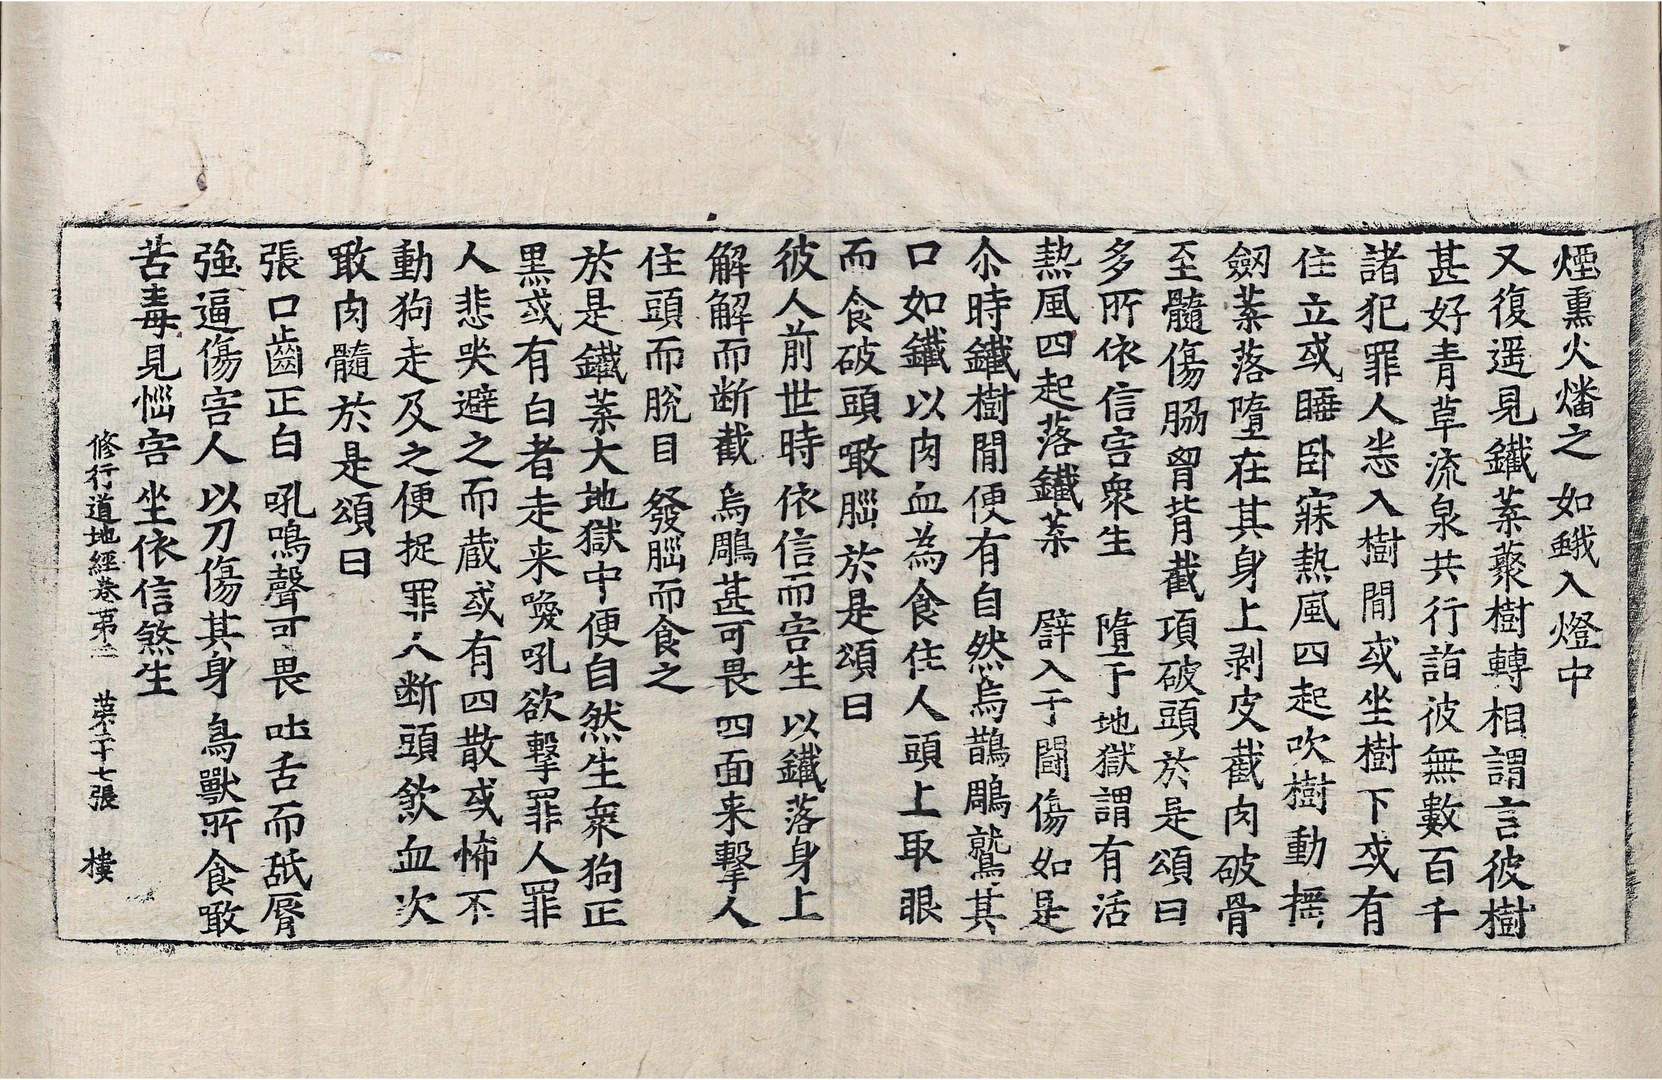 煙熏火燔之 如蛾入燈中
又復遥見鐵葉藂樹轉相謂言彼樹
甚好青草流泉共行詣彼無數百千
諸犯罪人悉入樹閒或坐樹下或有
住立或睡卧寐熱風四起吹樹動揺
劒葉落墮在其身上剥皮截肉破骨
至髓傷脇胷背截項破頭於是頌曰
多所依信害衆生 墮于地獄謂有活
熱風四起落鐵葉 譬入于鬪傷如是
尒時鐵樹閒便有自然烏鵲鵰鷲其
口如鐵以肉血為食住人頭上取眼
而食破頭噉腦於是頌曰
彼人前世時 依信而害生 以鐵落身上
解解而断截 烏鵰甚可畏 四面来擊人
住頭而脱目 發腦而食之
於是鐵葉大地獄中便自然生衆狗正
黒或有白者走来喚吼欲擊罪人罪
人悲哭避之而蔵或有四散或怖不
動狗走及之便捉罪人断頭飲血次
噉肉髓於是頌曰
張口齒正白 吼鳴聲可畏 吐舌而舐脣
強逼傷害人 以刀傷其身 鳥獸所食噉
苦毒見惱害 坐依信煞生
修行道地經卷第三 第二十七張 樓